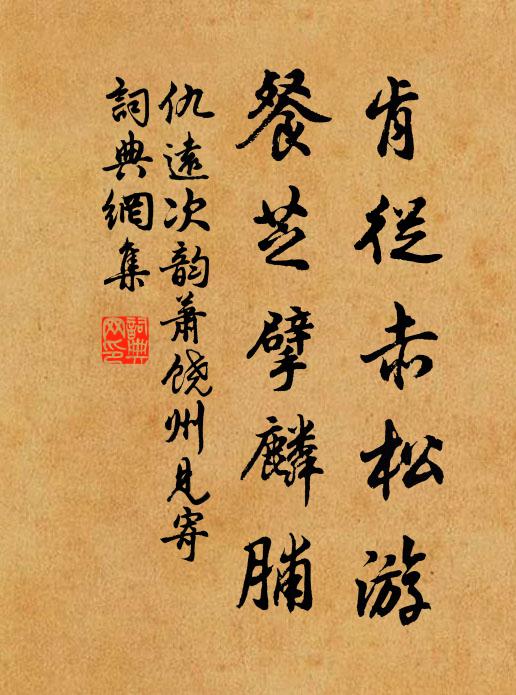 肯從赤松游
餐芝擘麟脯
仇遠次韵蕭饒州見寄
詞典網集
詞典
网印